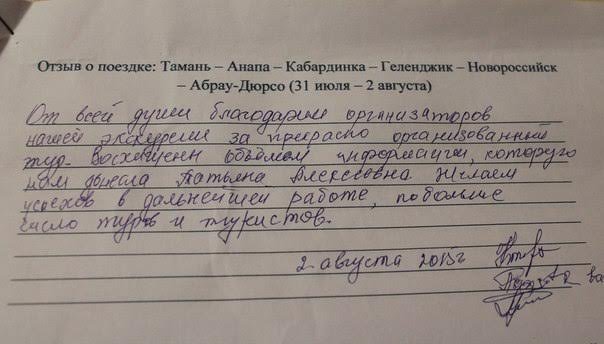 Отзыв о поездке: Тамань – Анапа – Кабардинка – Геленджик – Новороссийск
– Абрау-Дюрсо (31 июля – 2 августа)
От всей души благодарим организаторов
нашей экскурсии за прекрасно организованный
тур. Восхищены объёмом информации, которую
нам донесла Татьяна Алексеевна. Желаем
успехов в дальнейшей работе, побольше
число туров и туристов.
2 августа 2015г